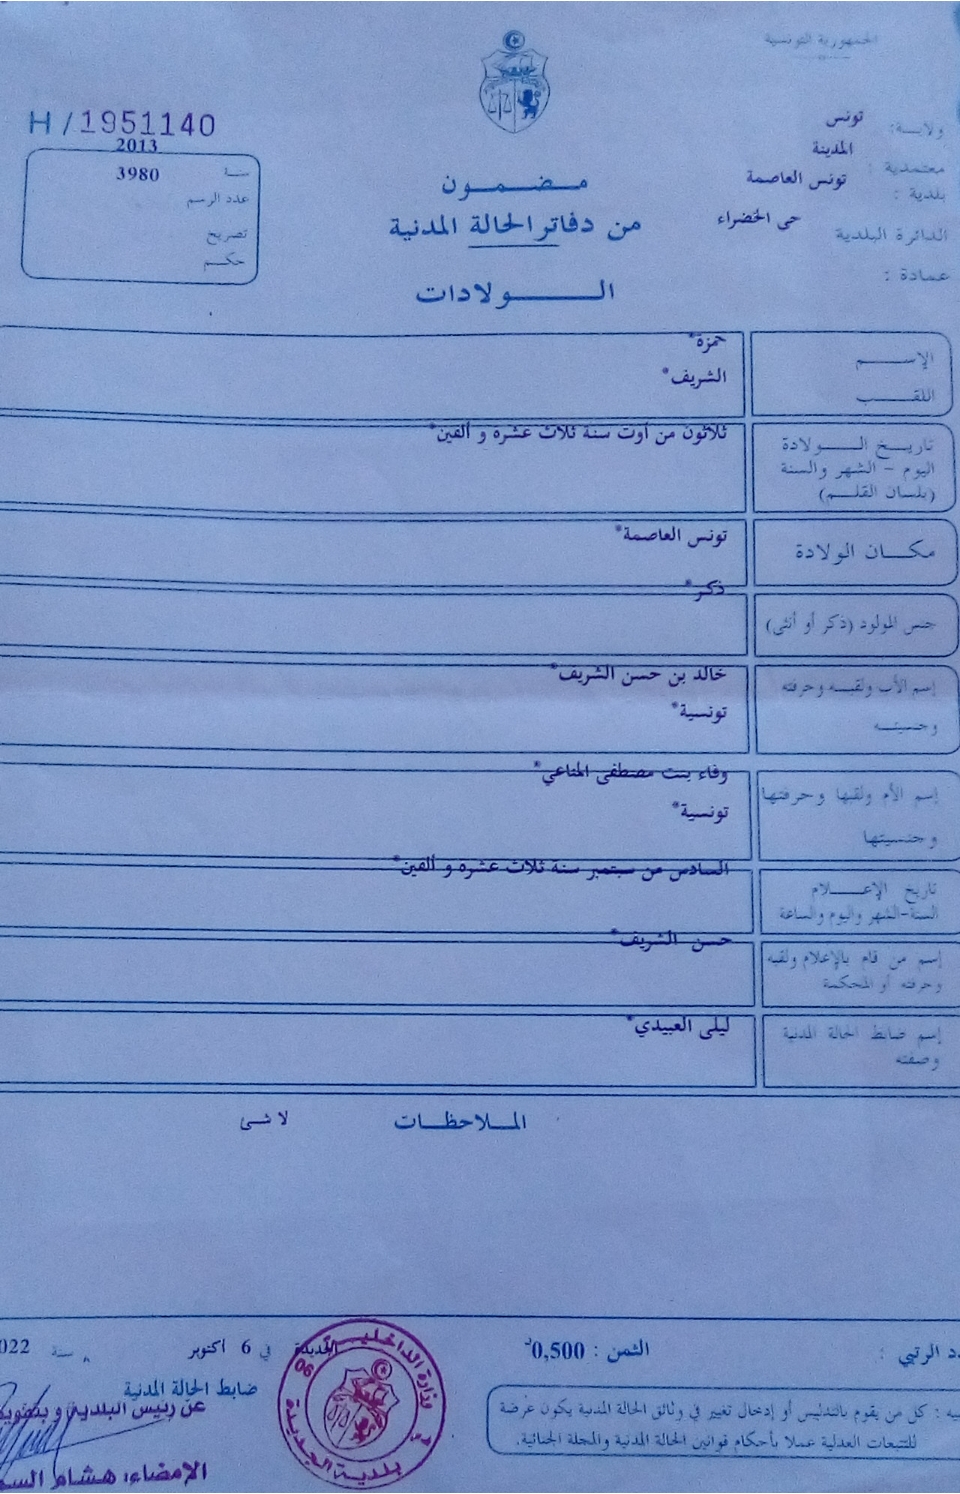 الجمهورية التونسية
H / 1951140
ولاية: تونس
معتمدية : المدينة
بلدية : تونس العاصمة
الدائرة البلدية حى الخضراء
عمادة :
سنة 2013
عدد الرسم 3980
تصريح
حكم
مضمون
من دفاتر الحالة المدنية
الولادات
الإسم حمزة*
اللقب الشريف*
تاريخ الولادة
اليوم - الشهر والسنة
(بلسان القلم)
ثلاثون من أوت سنة ثلاث عشرة و ألفين*
مكان الولادة تونس العاصمة*
جنس المولود (ذكر أو أنثى) ذكر*
إسم الأب ولقبه وحرفته خالد بن حسن الشريف*
وجنسيته تونسية*
إسم الأم ولقبها وحرفتها وفاء بنت مصطفى المناعي*
وجنسيتها تونسية*
تاريخ الإعلام
السنة-الشهر واليوم والساعة
السادس من سبتمبر سنة ثلاث عشرة و ألفين*
إسم من قام بالإعلام ولقبه
وحرفته أو المحكمة
حسن الشريف*
إسم ضابط الحالة المدنية
وصفته
ليلى العبيدي*
الملاحظات لا شئ
الرتبي :
الثمن : 0,500د
الجديدة في 6 أكتوبر سنة 022
ضابط الحالة المدنية
عن رئيس البلدية و بتفويض
الإمضاء: هشام
وزارة الداخلية
بلدية الجديدة
06
: كل من يقوم بالتدليس أو إدخال تغيير في وثائق الحالة المدنية يكون عرضة
للتتبعات العدلية عملا بأحكام قوانين الحالة المدنية والمجلة الجنائية.